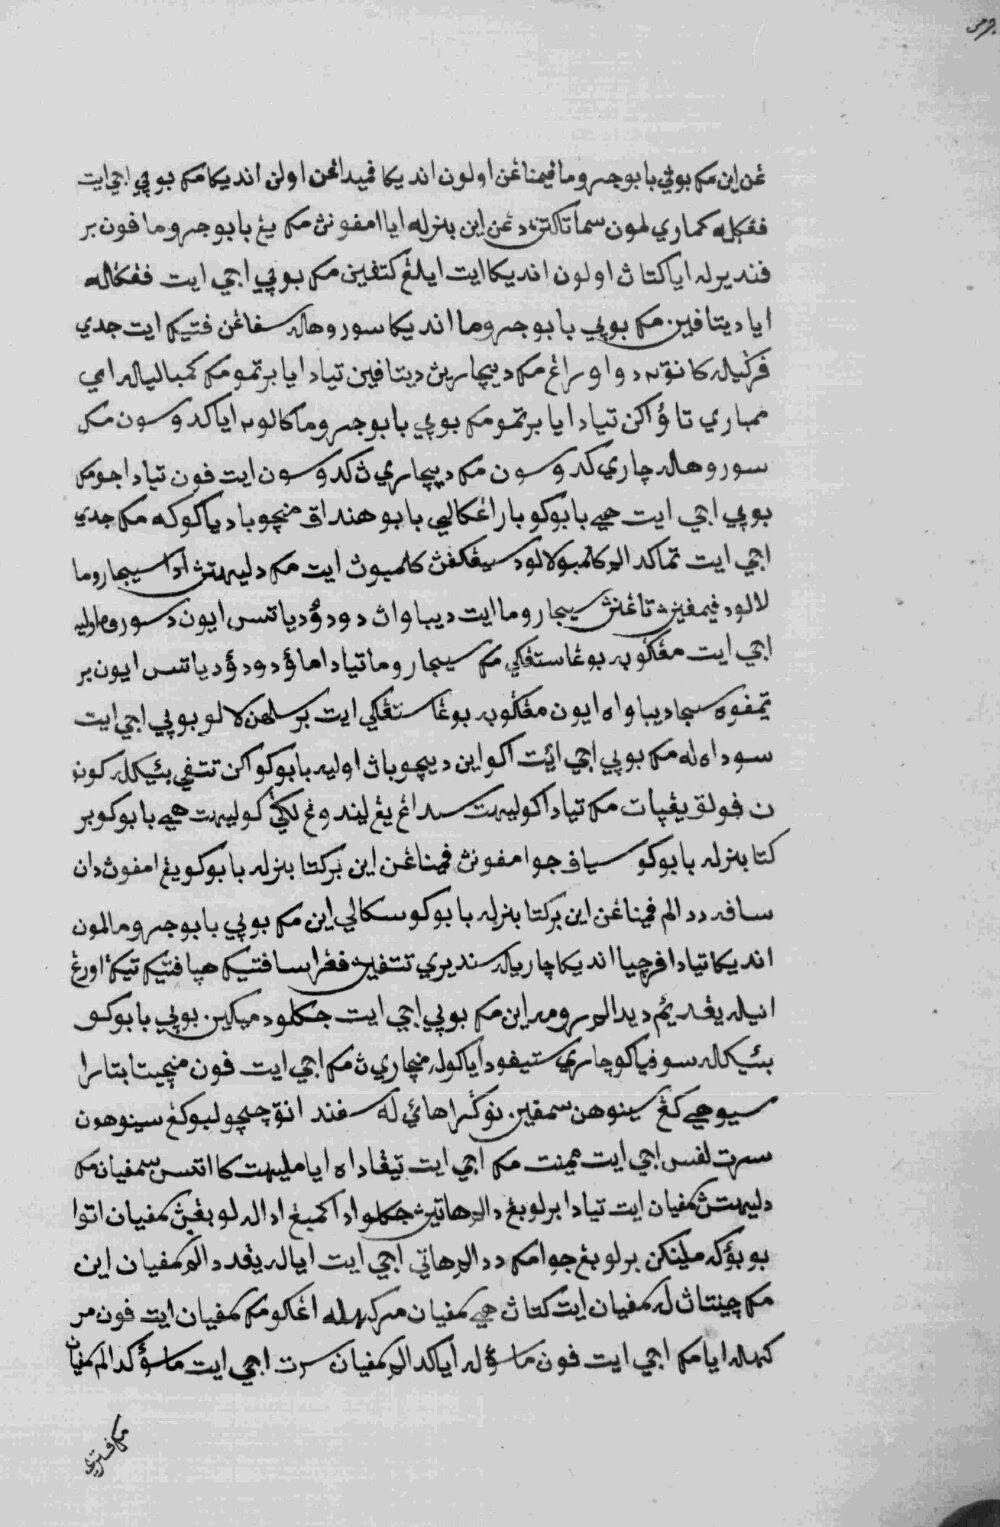 غن اين مک بوڤي بابوجروما ڤميناغن اولون انديکا ڤميداغن اولن انديکا مک بوڤي اجي ايت
ڤڠݢله کماري لمون سمات اکتن دغن اين بنرله ايا امڤونڽ مک يڠ بابوجروما ڤون بر
ڤنديرله ايا کتاڽ اولون انديکا ايت ايلڠ کتڤين مک بوڤي اجي ايت ڤڤکاله
ايا ديتاڤين مک بوڤي بابوجروما انديکا سوروهله سڤاغن ڤتيک ايت جدي
ڤرݢياله کانق٢ دوا اورڠ مک دچاريڽ ديتاڤين تياد ايا برتمو مک کمبالياله امي
ممباري تاؤاکن تياد ايا برتمو مک بوڤي بابوجروما کالو٢ ايا کدوسون مک
سوروهاله چاري کدوسون مک دچاريڽ کدوسون ايت ڤون تياد اجو مک
بوڤي اجي ايت هي بابوکو باراڠکالي بابو هندق منچوبا دياکو که مک جدي
اجي ايت تماکدالم کلمبو لالو دسيڠکڤڽ کلمبوڽ ايت مک دليهتڽ ادا سيجاروما
لالو دڤيمڤين تاڠنڽ سيجاروما ايت ديباواڽ دودؤ دياتس ايون دسوروه اوليه
اجي ايت مڠݢوڤ بوڠا ستڠکي مک سيجاروما تياد اماؤ دودؤ دياتس ايون بر
تمڤوه سجا ديباواه ايون مڠݢوڤ بوڠا ستڠکي ايت برسلهن لالو بوڤي اجي ايت
سوداه له مک بوڤي اجي ايت اکو اين ديچوباڽ اوليه بابوکو اکن تتڤي بئيکله کونو
ن ڤولق يڠڤات مک تياد اکو ليهت سداڠ يڠ ليندوڠ لاݢي کوليهت هي بابوکو بر
کتا بنرله بابوکو سياڤ جوا امڤونڽ ڤميناغن اين برکتا بنرله بابوکو يڠ امڤوڽ دان
ساڤه ددالم ڤميناغن اين برکتا بنرله بابوکو سکالي اين مک بوڤي بابوجروما لمون
انديکا تياد ڤرچيا انديکا چارياله سنديري تتڤين ڤڠراسا ڤتيک هي ڤتيک تيݢ اورڠ
انيله يڠديم ديدالم روم اين مک بوڤي اجي ايت جکلو دميکين بوڤي بابوکو
بئيکاله سوڤيا کوچاري ستيڤو دايا کوله منچاريڽ مک اجي ايت ڤون منچيتا بتارا
سيو هي کڠ سينوهن سمڤين نوݢراهائي له سڤند انق چوچو لبوکڠ سينوهون
سرت لڤس اجي ايت ممينت مک اجي ايت تيڠاداه ايا مليهت کاتس سمڤيان مک
دليهتڽ کمڤيان ايت تياد ابرلوبڠ دالم هاتيڽ جکلو ادا کمبڠ اداله لوبڠڽ کمڤيان اتوا
بوبؤکه مڠينکن برلوبڠ جوا مک ددالم هاتي اجي ايت اياله يڠد دالم کمڤيان اين
مک چيتاڽ له کمڤيان ايت کتاڽ هي کمڤيان مرکهله اڠکو مک کمڤيان ايت ڤون مر
کهله ايا مک اجي ايت ڤون ماسؤله ايا کدالم کمڤيان سرت اجي ايت ماسؤ کدالم کمڤيان
مک ڤتري